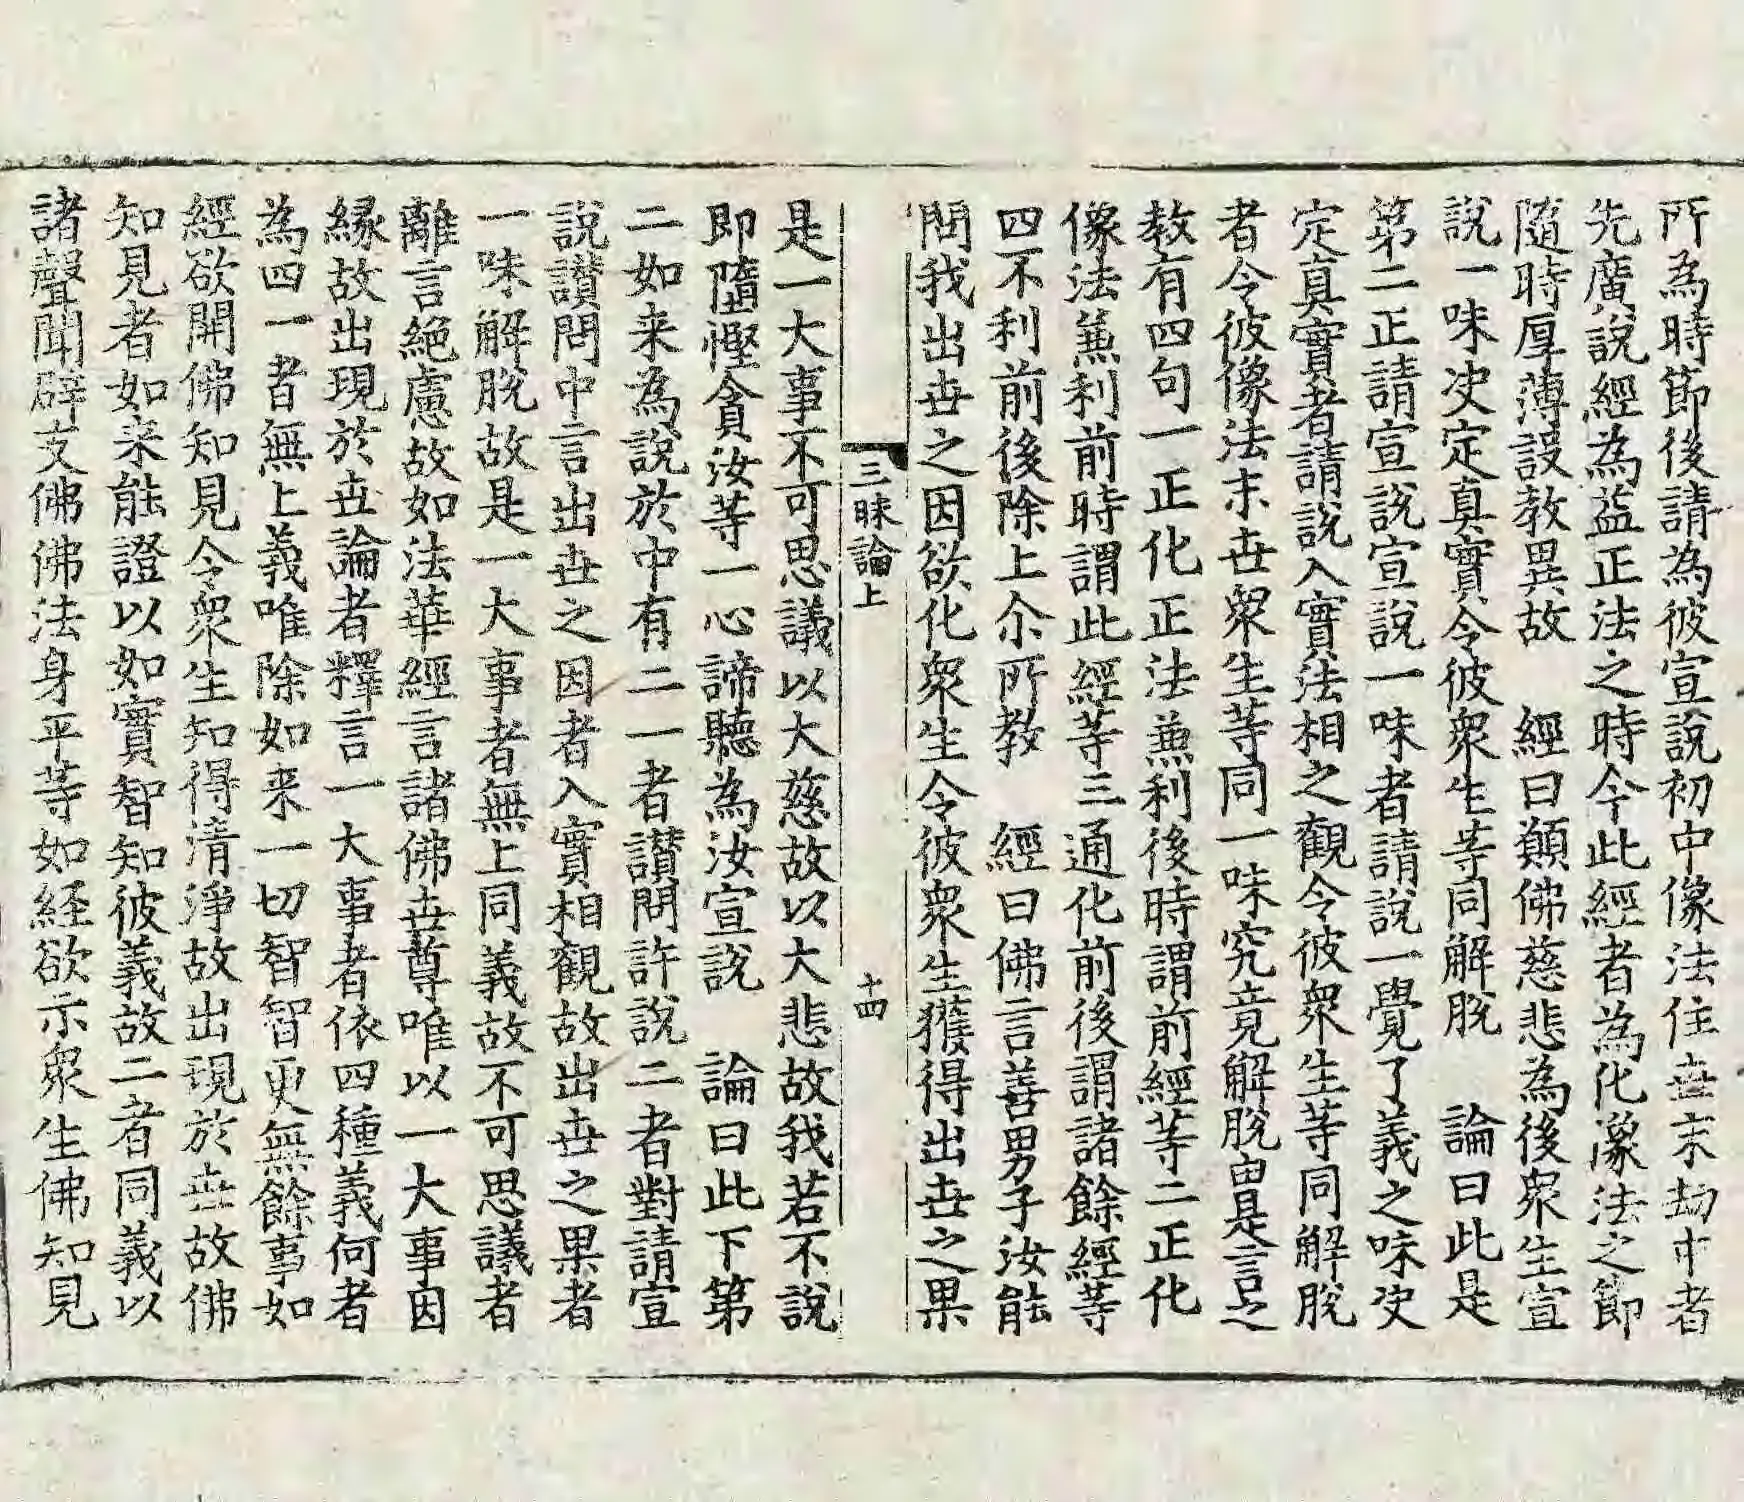 所為時節後請為彼宣說初中像法住世末劫中者
先廣說經為益正法之時今此經者為化像法之節
隨時厚薄設教異故　經曰願佛慈悲為後衆生宣
說一味決定真實令彼衆生等同解脫　論曰此是
第二正請宣說宣說一味者請說一覺了義之味決
定真實者請說入實法相之觀令彼衆生等同解脫
者令彼像法末世衆生等同一味究竟解脫由是言之
教有四句一正化正法兼利後時謂前經等二正化
像法兼利前時謂此經等三通化前後謂諸餘經等
四不利前後除上尒所教　經曰佛言善男子汝能
問我出世之因欲化衆生令彼衆生獲得出世之果
三昧論上　十四
是一大事不可思議以大慈故以大悲故我若不說
即墮慳貪汝等一心諦聽為汝宣說　論曰此下第
二如来為說於中有二一者讃問許說二者對請宣
說讃問中言出世之因者入實相觀故出世之果者
一味解脫故是一大事者無上同義故不可思議者
離言絕慮故如法華經言諸佛世尊唯以一大事因
緣故出現於世論者釋言一大事者依四種義何者
為四一者無上義唯除如来一切智智更無餘事如
經欲開佛知見令衆生知得清淨故出現於世故佛
知見者如来能證以如實智知彼義故二者同義以
諸聲聞辟支佛佛法身平等如経欲示衆生佛知見